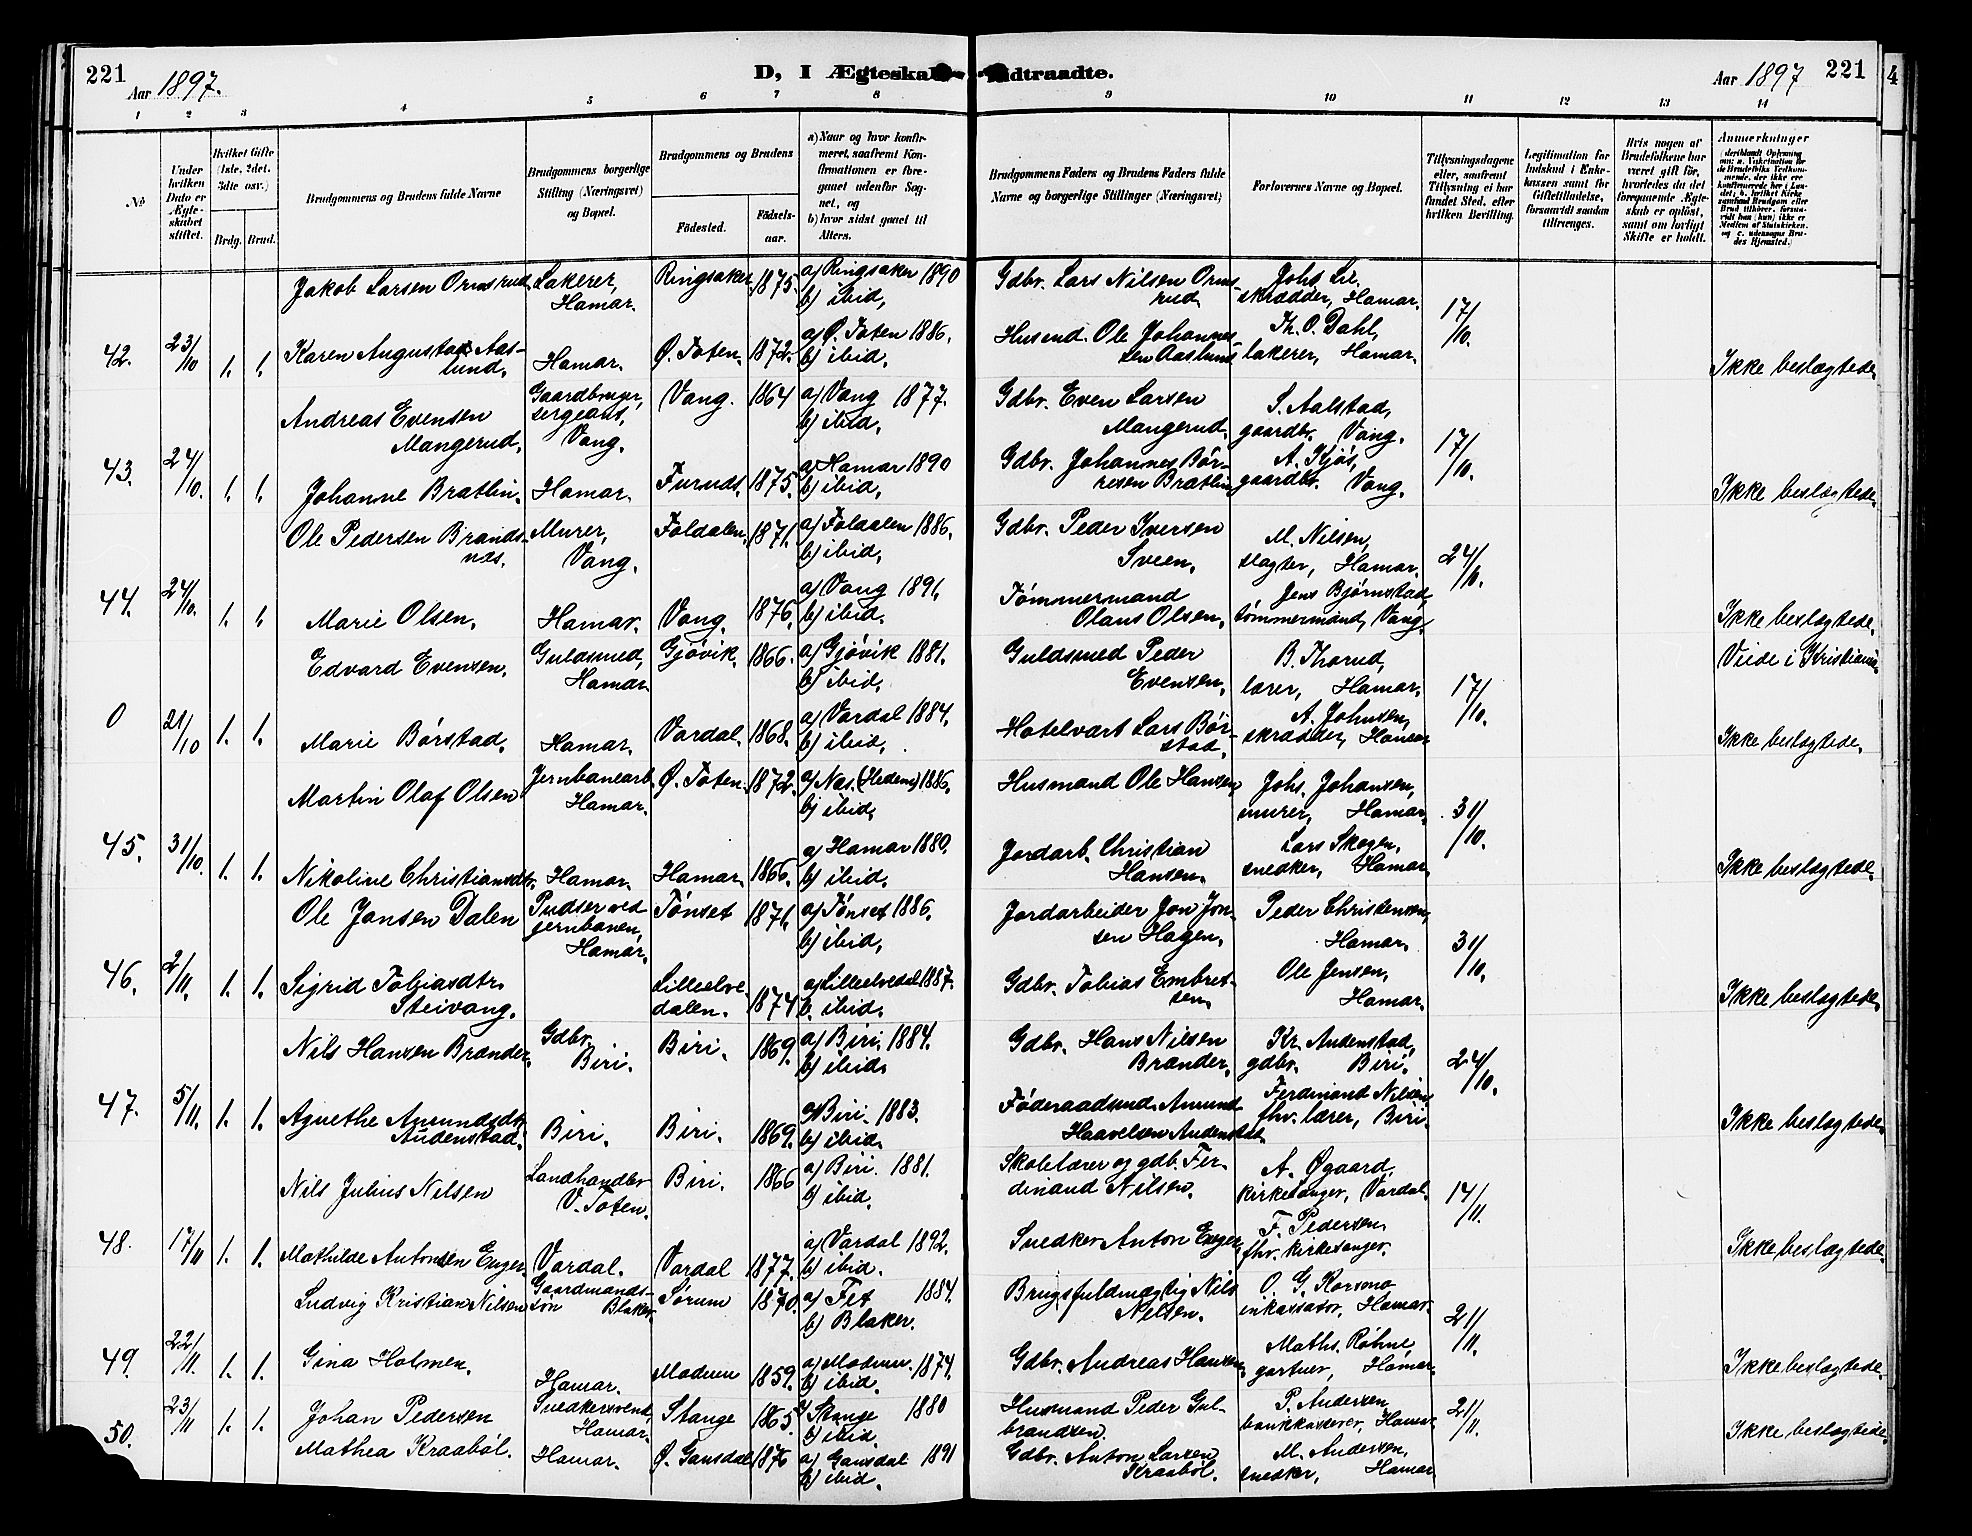 221
Aar 1897.
D, I Ægteska
ndtraadte.
Aar 1897
221
4
1 2 3 4 5 6 7 8 9 10 11 12 13 14
No
Under hvilken Dato er Ægteskabet stiftet.
Hvilket Gifte (1ste, 2det, 3dte osv.)
Brdg. Brud.
Brudgommens og Brudens fulde Navne
Brudgommens borgerlige Stilling (Næringsvei) og Bopæl.
Brudgommens og Brudens
Fødested. Fødselsaar.
a) Naar og hvor konfirmeret, saafremt Konfirmationen er foregaaet udenfor Sognet, og
b) hvor sidst gaaet til Alters.
Brudgommens Faders og Brudens Faders fulde Navne og borgerlige Stillinger (Næringsvei)
Forlovernes Navne og Bopæl.
Tillysningsdagene eller, saafremt Tillysning ei har fundet Sted, efter hvilken Bevilling.
Legitimation for Indskud i Enkekassen samt for Giftetilladelse, forsaavidt saadan tiltrænges.
Hvis nogen af Brudefolkene har været gift før, hvorledes da det foregaaende Ægteskab er opløst, samt om lovligt Skifte er holdt.
Anmerkninger
Jakob Larsen Ormsrud Lakerer, Hamar. Ringsaker 1875. a) Ringsaker 1890 b) ibid. Gdbr. Lars Nilsen Ormsrud skrædder, Hamar. 17/10.
42. 23/10 1. 1. Karen Augusta Aaslund. Hamar. Ø. Toten. 1872. a) Ø. Toten 1886. b) ibid. Husmd. Ole Johannessen Aaslund Th. O. Dahl, lakerer, Hamar. Ikke beslægtede.
Andreas Evensen Mangerud. Gaardbruger, sergeant, Vang. Vang. 1864 a) Vang 1877. b) ibid. Gdbr. Even Larsen Mangerud. S. Aalstad, gaardbr. Vang. 17/10.
43. 24/10. 1. 1. Johanne Brætlin. Hamar. Furuds. 1875. a) Hamar 1890 b) ibid. Gdbr. Johannes Børresen Brætlin A. Kjøs, gaardbr. Vang. Ikke beslægtede.
Ole Pedersen Brandsnæs. Murer, Vang. Foldalen. 1871. a) Foldalen 1886. b) ibid. Gdbr. Peder Iversen Sveen. M. Nilsen, slagter, Hamar. 24/10.
44. 24/10. 1. 1. Marie Olsen. Hamar. Vang. 1876. a) Vang 1891. b) ibid. Tømmermand Olaus Olsen. Jens Bjørnstad, tømmermand, Vang. Ikke beslægtede.
Edvard Evensen. Guldsmed, Hamar. Gjøvik. 1866. a) Gjøvik 1881. b) ibid. Guldsmed Peder Evensen. B. Thorud, lærer, Hamar. 17/10. Viede i Kristiania
0 21/10 1. 1. Marie Børstad. Hamar. Vardal. 1868. a) Vardal 1884. b) ibid. Hotelvært Lars Børstad. A. Johnsen, skrædder, Hamar Ikke beslægtede.
Martin Olaf Olsen Jernbanearb. Hamar. Ø. Toten. 1872. a) Næs (Hedem) 1886. b) ibid. Husmand Ole Hansen. Johs. Johansen, murer, Hamar. 31/10.
45. 31/10. 1. 1. Nikoline Christiansdtr. Hamar. Hamar. 1866. a) Hamar 1880. b) ibid. Jordarb. Christian Hansen. Lars Skogen, snedker, Hamar Ikke beslægtede.
Ole Jonsen Dalen Pudser ved jernbanen, Hamar. Tønset 1871. a) Tønset 1886. b) ibid. Jordarbeider Jon Jonsen Hagen. Peder Christensen, Hamar. 31/10.
46. 2/11. 1. 1. Sigrid Tobiasdtr. Steivang. Lilleelvedalen. 1874 a) Lilleelvedal 1887. b. ibid. Gdbr. Tobias Embretsen. Ole Jensen, Hamar. Ikke beslægtede.
Nils Hansen Brænder. Gdbr. Biri. Biri. 1869. a) Biri. 1884. b) ibid. Gdbr. Hans Nilsen Brænder. Kr. Audenstad, gdbr. Biri. 24/10.
47. 5/11. 1. 1. Agnethe Amundsdtr. Audenstad. Biri. Biri. 1869. a) Biri. 1883. b) ibid. Føderaadsmd. Amund Haavelsen Audenstad Ferdinand Nilsen fhv. lærer, Biri. Ikke beslægtede.
Nils Julius Nilsen Landhandler V. Toten. Biri. 1866 a) Biri. 1881. b) ibid. Skolelærer og gdb. Ferdinand Nilsen. A. Øgaard, kirkesanger, Vardal. 14/11.
48. 17/11 1. 1. Mathilde Antonsen Enger. Vardal. Vardal 1877. a) Vardal 1892. b) ibid. Snedker Anton Enger F. Pedersen, fhv. kirkesanger. Ikke beslægtede.
Ludvig Kristian Nilsen Gaardmandssøn Blaker. Sørum 1870. a) Fet 1884. b) Blaker. Brugsfuldmægtig Nils Nilsen. O. G. Korsmo inkassator, Hamar. 21/11.
49. 22/11. 1. 1. Gina Holmen. Hamar. Modum 1859. a) Modum. 1874. b) ibid. Gdbr. Andreas Hansen. Maths. Røhne, gartner, Hamar. Ikke beslægtede.
50. 23/11 1. 1. Johan Pedersen Snedkersvend, Hamar. Stange 1865 a) Stange 1880 b) ibid. Husmand Peder Gulbrandsen. P. Andersen, bankkasserer, Hamar. 21/11. Ikke beslægtede.
Mathea Kraabøl. Hamar. Ø. Gausdal 1876 a) Gausdal 1891 b) ibid. Gdbr. Anton Larsen Kraabøl. M. Andersen, snedker, Hamar